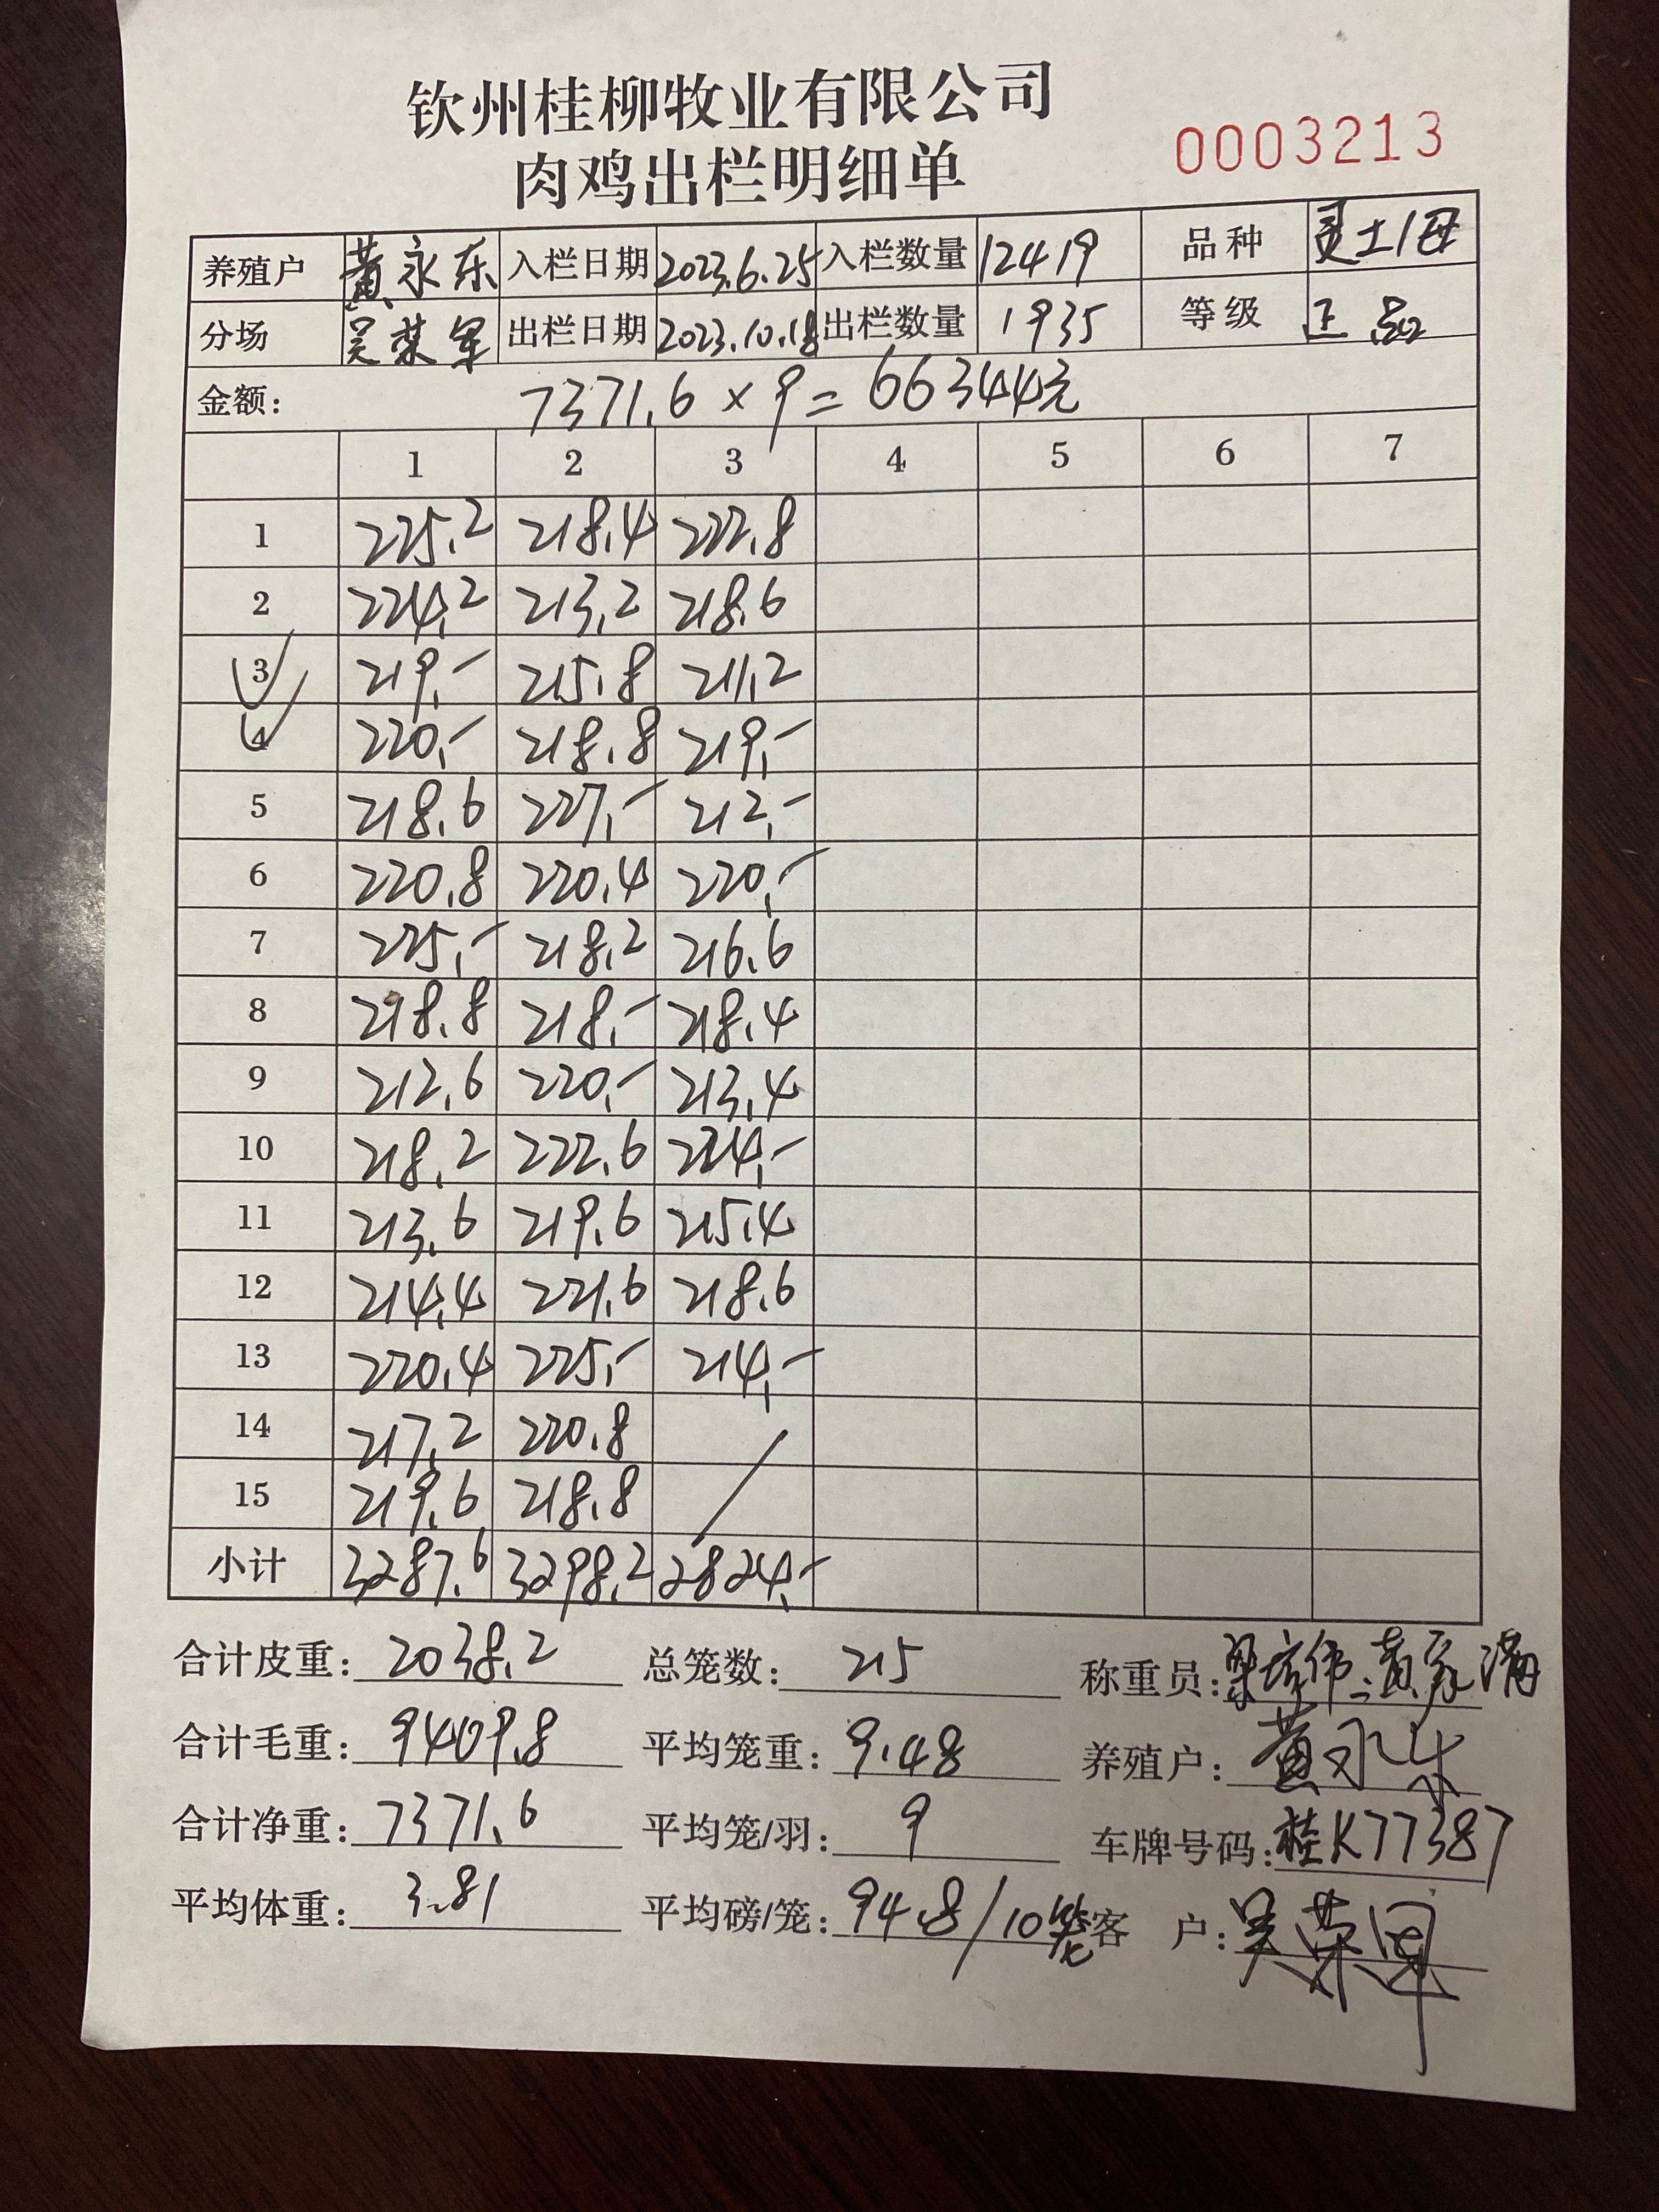 钦州桂柳牧业有限公司
肉鸡出栏明细单
0003213
养殖户 黄永东 入栏日期 2023.6.25 入栏数量 12419 品种 灵土1母
分场 吴荣军 出栏日期 2023.10.18 出栏数量 1935 等级 正品
金额: 7371.6 × 9 = 66344元
1 2 3 4 5 6 7
1 225.2 218.4 222.8
2 224.2 213.2 218.6
3 219.- 215.8 211.2
4 220.- 218.8 219.-
5 218.6 227.- 212.-
6 220.8 220.4 220.-
7 225.- 218.2 216.6
8 218.8 218.- 218.4
9 212.6 220.- 213.4
10 218.2 222.6 224.-
11 213.6 219.6 215.4
12 214.4 221.6 218.6
13 220.4 225.- 214.-
14 217.2 220.8
15 219.6 218.8
小计 3287.6 3298.2 2824.-
合计皮重: 2038.2 总笼数: 215 称重员: 黄家满
合计毛重: 9409.8 平均笼重: 9.48 养殖户: 黄永东
合计净重: 7371.6 平均笼/羽: 9 车牌号码: 桂K77387
平均体重: 3.81 平均磅/笼: 94.8/10笼 客 户: 吴荣军